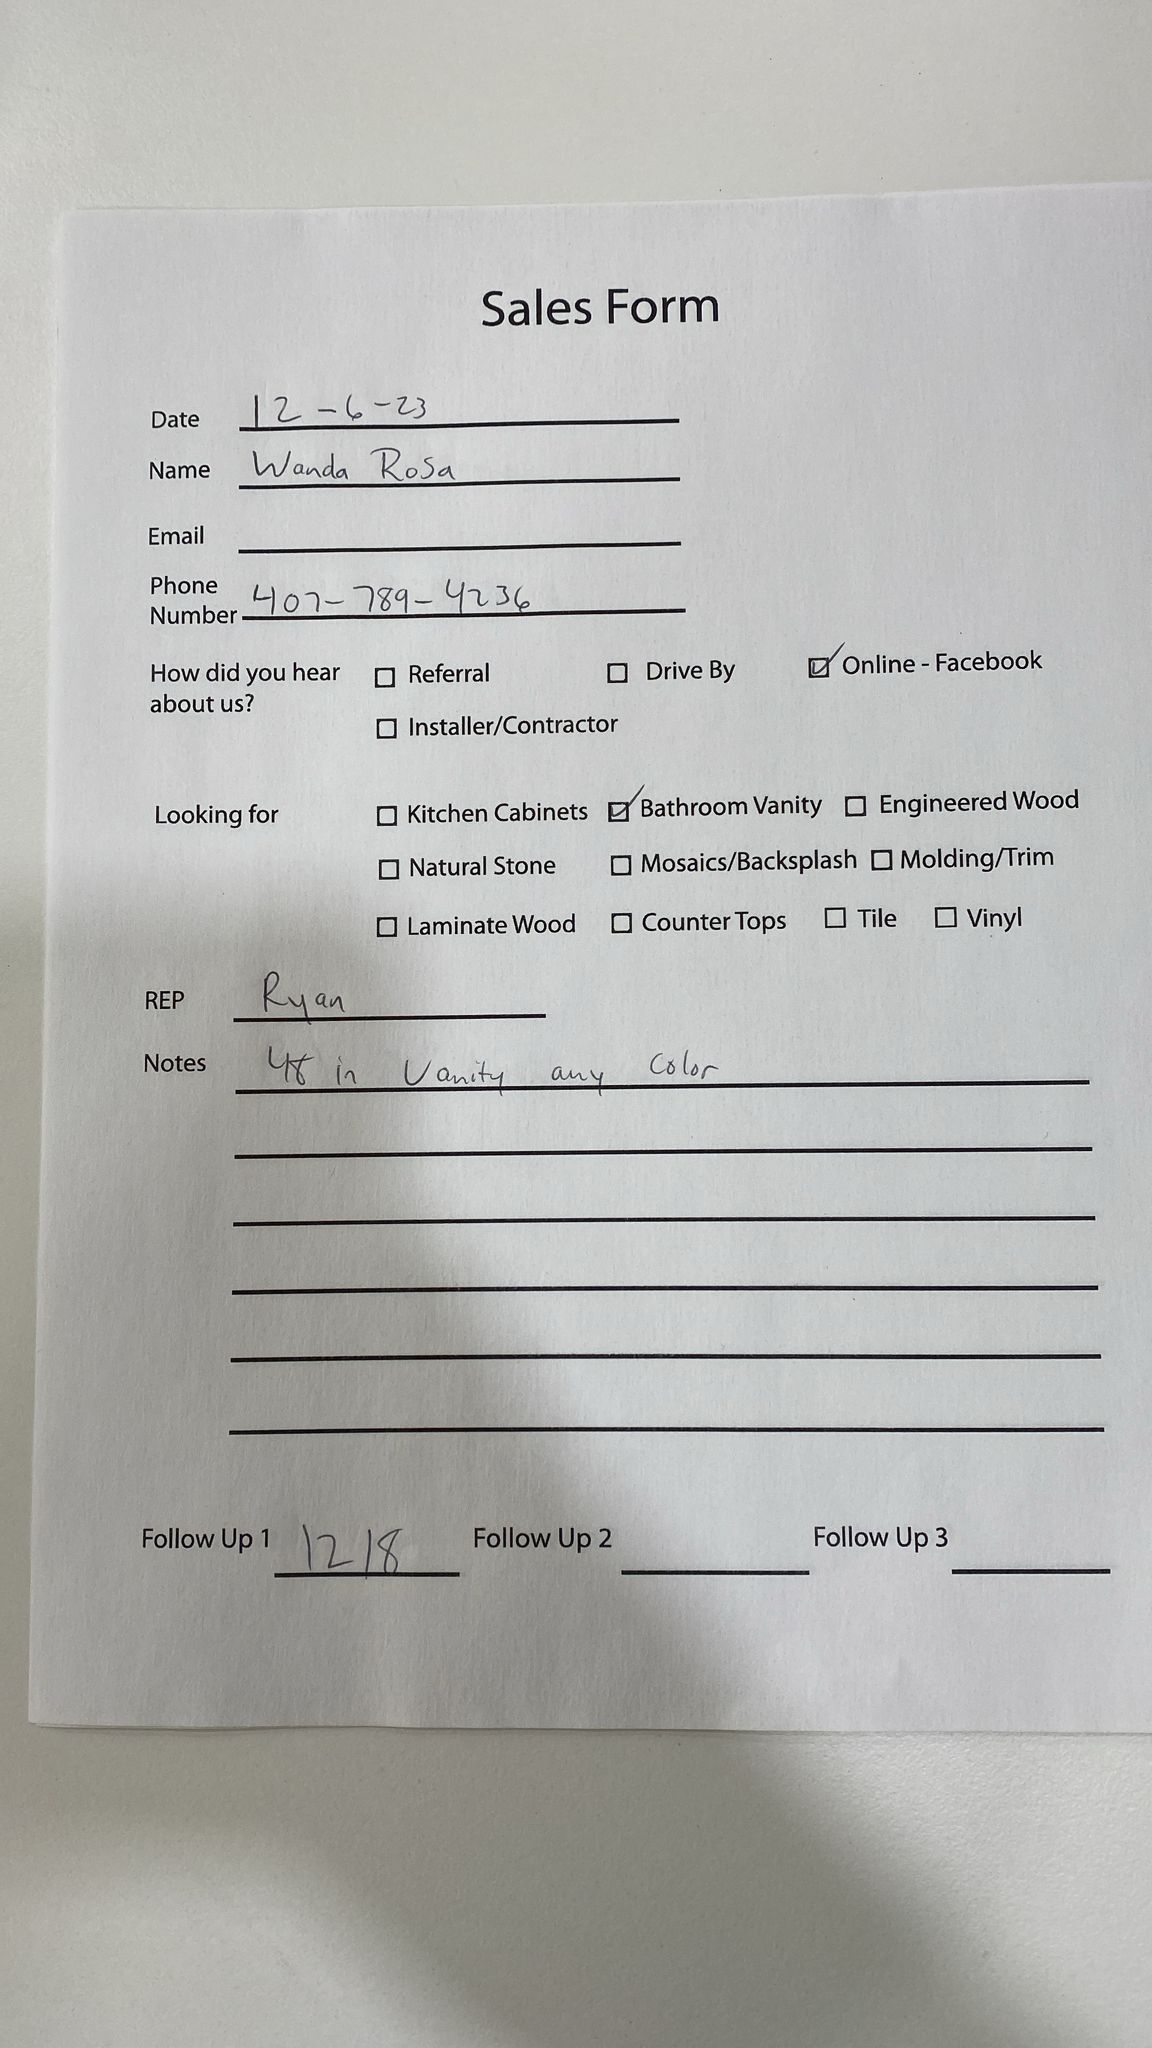 Sales Form
Date 12-6-23
Name Wanda Rosa
Email
Phone
Number 407-789-4236
How did you hear ☐ Referral ☐ Drive By ☑ Online - Facebook
about us?
☐ Installer/Contractor
Looking for ☐ Kitchen Cabinets ☑ Bathroom Vanity ☐ Engineered Wood
☐ Natural Stone ☐ Mosaics/Backsplash ☐ Molding/Trim
☐ Laminate Wood ☐ Counter Tops ☐ Tile ☐ Vinyl
REP Ryan
Notes 48 in Vanity any color
Follow Up 1 12/8 Follow Up 2 Follow Up 3